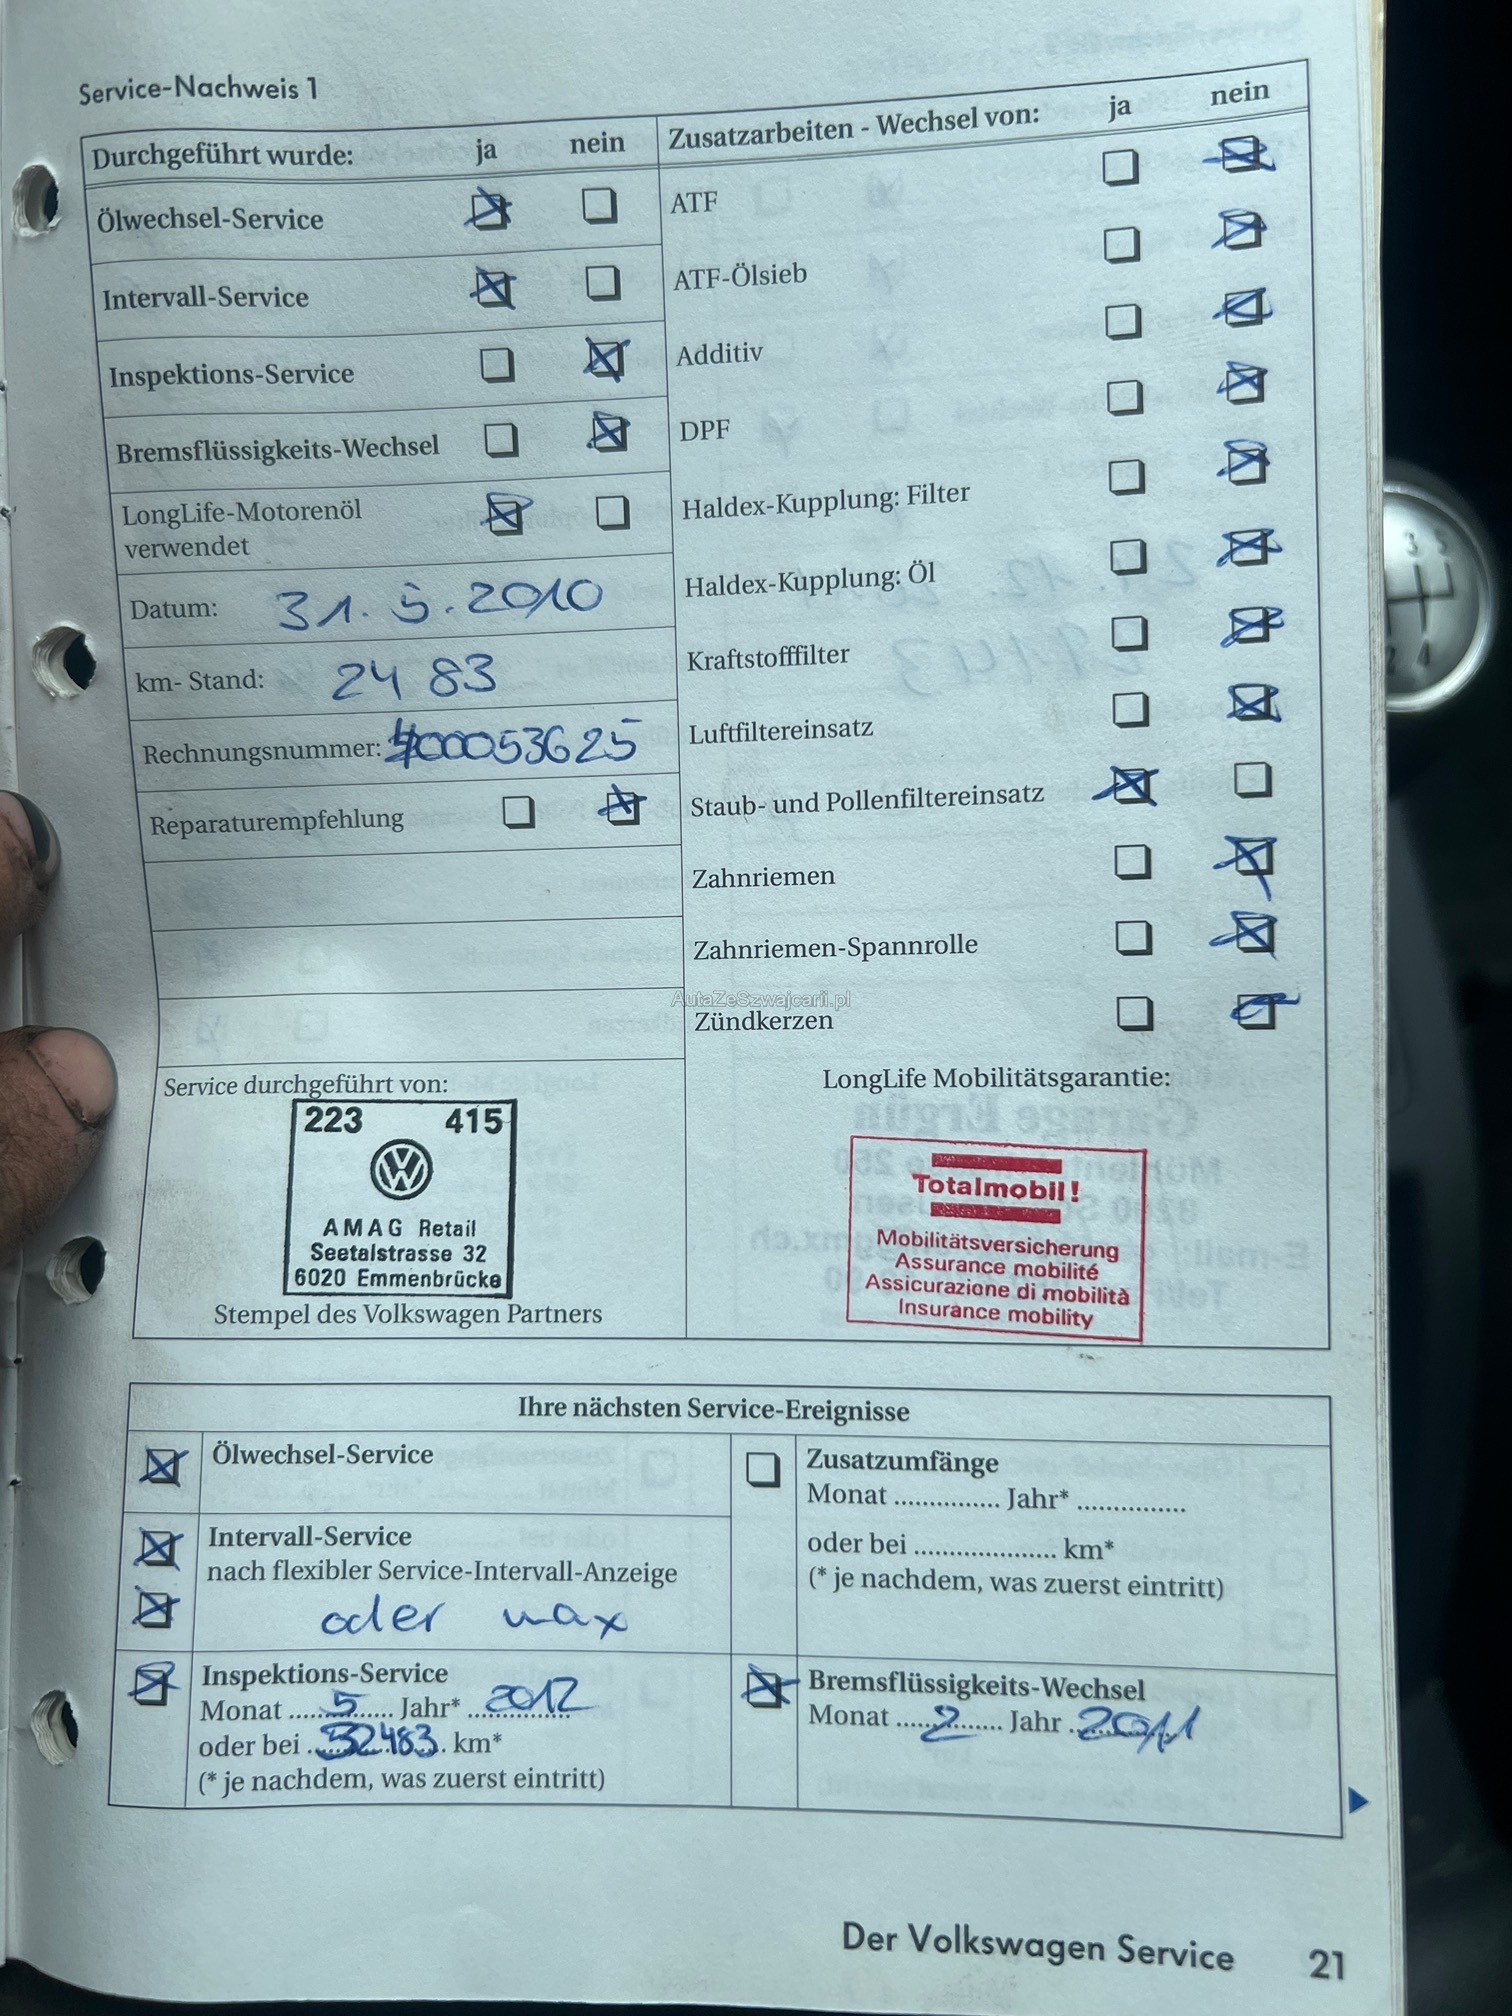 Service-Nachweis 1
Durchgeführt wurde: ja nein
Ölwechsel-Service
Intervall-Service
Inspektions-Service
Bremsflüssigkeits-Wechsel
LongLife-Motorenöl
verwendet
Datum: 31.5.2010
km- Stand: 2483
Rechnungsnummer: 400053625
Reparaturempfehlung
Zusatzarbeiten - Wechsel von: ja nein
ATF
ATF-Ölsieb
Additiv
DPF
Haldex-Kupplung: Filter
Haldex-Kupplung: Öl
Kraftstofffilter
Luftfiltereinsatz
Staub- und Pollenfiltereinsatz
Zahnriemen
Zahnriemen-Spannrolle
AutaZeSzwajcarii.pl
Zündkerzen
Service durchgeführt von:
223 415
AMAG Retail
Seetalstrasse 32
6020 Emmenbrücke
Stempel des Volkswagen Partners
LongLife Mobilitätsgarantie:
Totalmobil!
Mobilitätsversicherung
Assurance mobilité
Assicurazione di mobilità
Insurance mobility
Ihre nächsten Service-Ereignisse
Ölwechsel-Service
Intervall-Service
nach flexibler Service-Intervall-Anzeige
oder max
Inspektions-Service
Monat 5 Jahr* 2012
oder bei 32483 km*
(* je nachdem, was zuerst eintritt)
Zusatzumfänge
Monat ............... Jahr* ...............
oder bei .................... km*
(* je nachdem, was zuerst eintritt)
Bremsflüssigkeits-Wechsel
Monat 2 Jahr 2011
Der Volkswagen Service 21